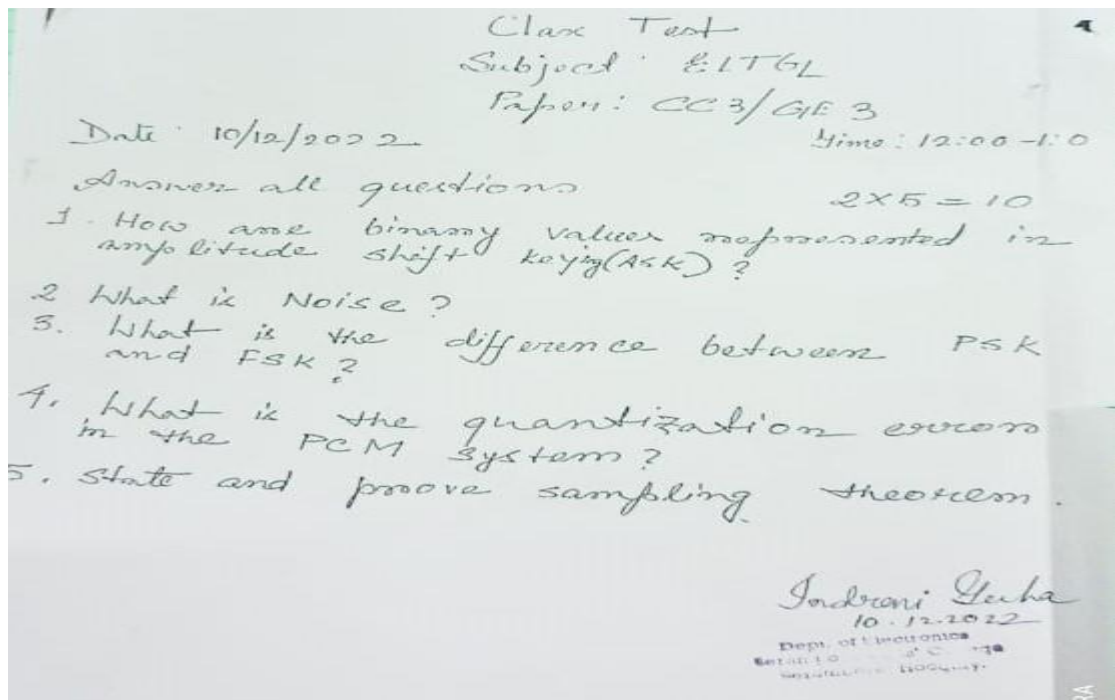 Class Test
Subject : ELTGL
Paper : CC3/GE 3
Date : 10/12/2022
Time : 12:00 - 1:0
Answer all questions
2×5 = 10
1. How are binary values represented in
amplitude shift keying(ASK) ?
2 What is Noise ?
3. What is the difference between PSK
and FSK ?
4. What is the quantization error
in the PCM system ?
5. State and proove sampling theorem.
Indrani Guha
10.12.2022
Dept. of Electronics
RA